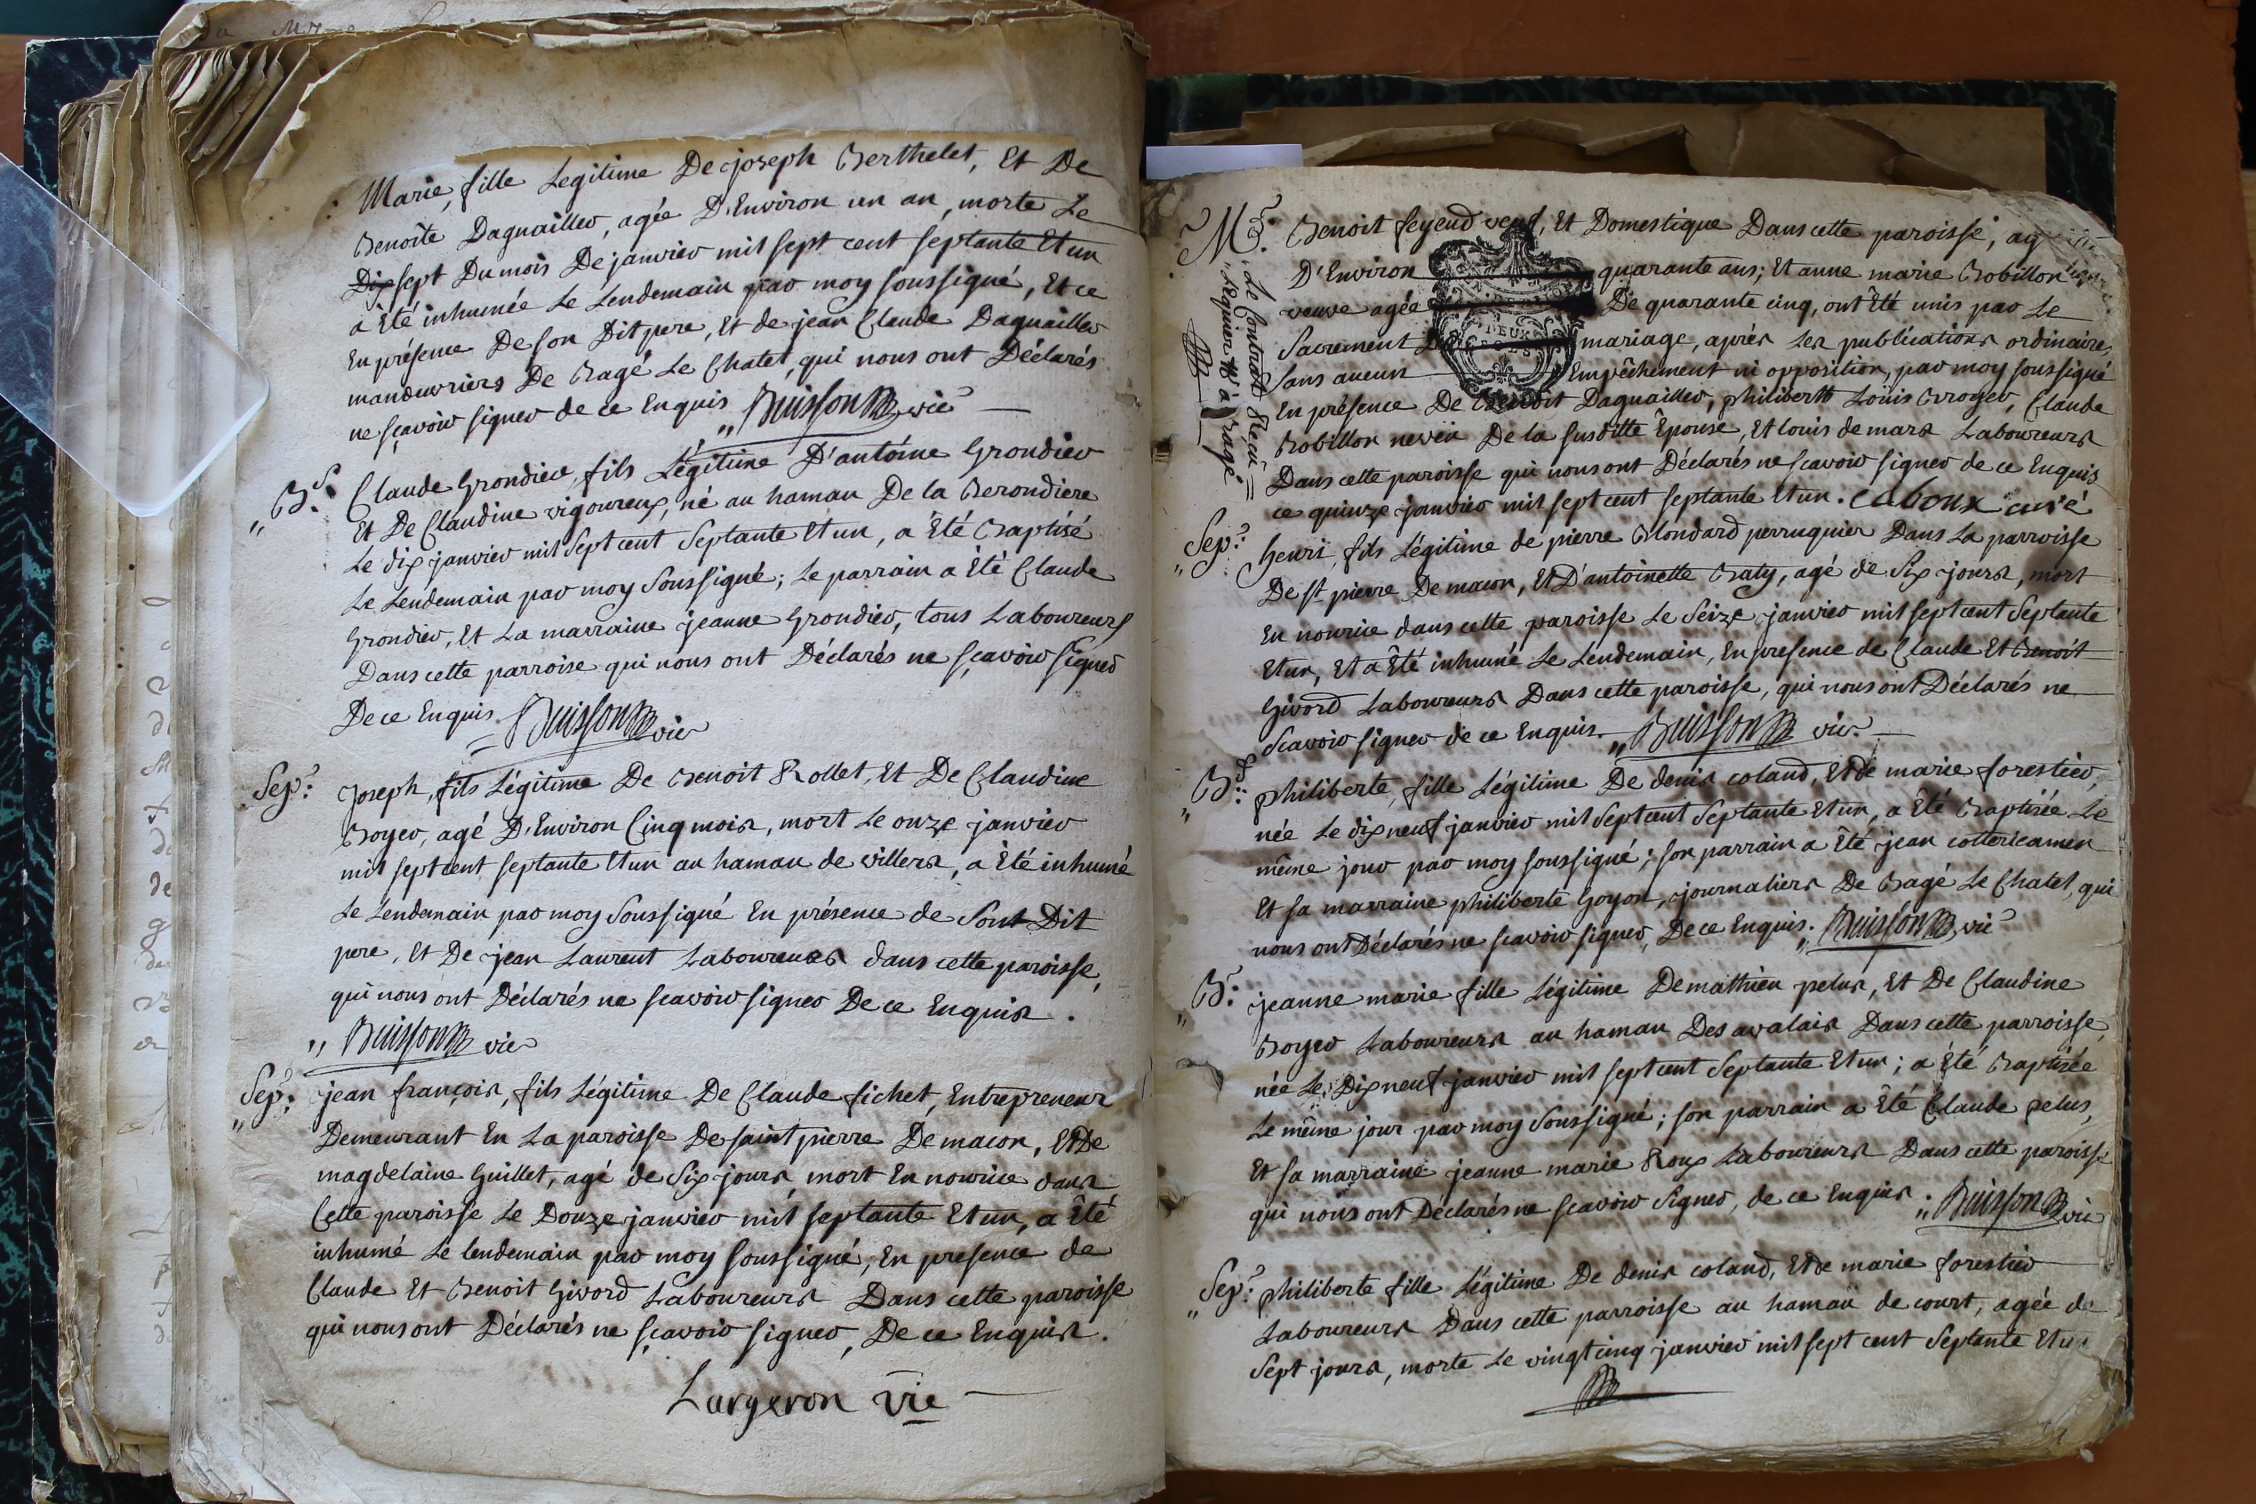 Marie, fille Legitime De joseph Berthelet, Et De
Benoîte Daguailler, agée D'Environ un an, morte Le
Dix sept Du mois De janvier mil sept cent septante Et un
a Eté inhumée Le Lendemain par moy soussigné, Et ce
En présence De son Dit pere, Et de jean Claude Daguailler
manœuvriers De Bagé Le Chatel, qui nous ont Déclarés
ne sçavoir signer de ce Enquis Buisson vic
B. Claude Grondier, fils Légitime D'antoine Grondier
Et De Claudine vigoureux, né au hamau De la Berondiere
Le dix janvier mil Sept cent Septante Et un, a Eté Baptisé
Le Lendemain par moy Soussigné; Le parrain a Eté Claude
Grondier, Et La marraine jeanne Grondier, tous Laboureurs
Dans cette parroise qui nous ont Déclarés ne sçavoir Signer
De ce Enquis. Buisson vic
Sep: Joseph, fils Légitime De Benoit Rollet, Et De Claudine
Boyer, agé D'Environ Cinq mois, mort Le onze janvier
mil sept cent septante Et un au hamau de villers, a Eté inhumé
Le Lendemain par moy Soussigné En présence de Sont Dit
pere, Et De jean Laurent Laboureurs dans cette paroisse,
qui nous ont Déclarés ne scavoir signer De ce Enquis.
Buisson vic
Sep: jean françois, fils Légitime De Claude fichet, Entrepreneur
Demeurant En La paroisse De saint pierre De macon, Et De
magdelaine Guillet, agé de Six jours, mort En nourice dans
Cette paroisse Le Douze janvier mil septante Et un, a Eté
inhumé Le lendemain par moy soussigné, En presence de
Claude Et Benoit Givord Laboureurs Dans cette paroisse
qui nous ont Déclarés ne sçavoir signer, De ce Enquis.
Largeron vic
M. Benoit feyend veuf, Et Domestique Dans cette paroisse, agé
D'Environ quarante ans; Et anne marie Bobillon
veuve agée De quarante cinq, ont Eté unis par Le
Sacrement De mariage, après Les publications ordinaires,
sans aucun Empêchement ni opposition, par moy soussigné
En présence De Benoit Daguailler, philibertt Loüis Broyer, Claude
Bobillon neveü De la susditte Epouse, Et louis de mars Laboureurs
Dans cette paroisse qui nous ont Déclarés ne scavoir signer de ce Enquis
ce quinze janvier mil sept cent septante Et un. caboux curé
Le Contract Reçu
Lequier à Bagé
Sep: henri, fils Légitime de pierre Blondard perruquier Dans La parroisse
De st pierre De macon, Et D'antoinette Baty, agé de Six jours, mort
En nourice dans cette paroisse Le Seize janvier mil sept cent Septante
Et un, Et a Eté inhumé Le Lendemain, En presence de Claude Et Benoit
Givord Laboureurs Dans cette paroisse, qui nous ont Déclarés ne
scavoir signer de ce Enquis. Buisson vic.
B: philiberte, fille Légitime De denis coland, Et de marie forestier,
née Le dix neuf janvier mil Sept cent Septante Et un, a Eté Baptisée Le
même jour par moy soussigné; son parrain a Eté jean
Et sa marraine philiberte Goyon, journaliers De Bagé Le Chatel, qui
nous ont Déclarés ne scavoir signer, De ce Enquis. Buisson vic
B: jeanne marie fille Légitime De mathieu pelus, Et De Claudine
Boyer Laboureurs au hamau Des avalais Dans cette parroisse,
née Le Dix neuf janvier mil sept cent Septante Et un; a Eté Baptisée
Le même jour par moy Soussigné; son parrain a Eté Claude pelus,
Et sa marraine jeanne marie Roux Laboureurs Dans cette paroisse
qui nous ont Déclarés ne scavoir Signer, de ce Enquis. Buisson vic
Sep: philiberte fille Légitime De denis coland, Et de marie forestier
Laboureurs Dans cette parroisse au hamau de court, agée de
Sept jours, morte Le vingt cinq janvier mil sept cent Septante Et un